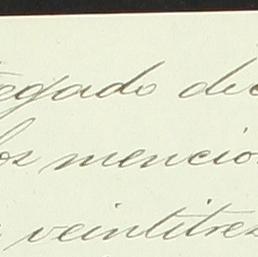 egado dic
los mencio
veintitres